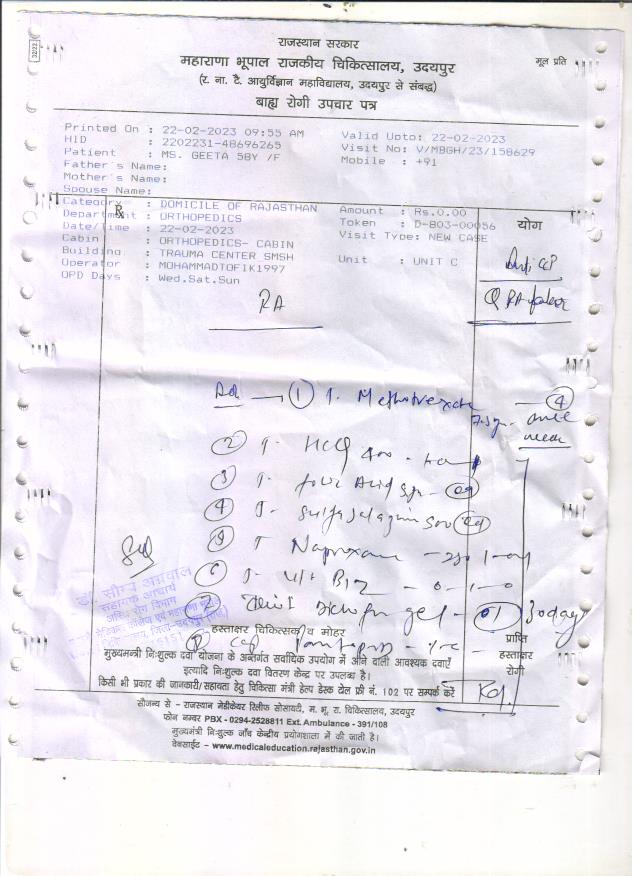 32/22
राजस्थान सरकार
महाराणा भूपाल राजकीय चिकित्सालय, उदयपुर
मूल प्रति
(र. ना. टै. आयुर्विज्ञान महाविद्यालय, उदयपुर से संबद्ध)
बाह्य रोगी उपचार पत्र
Printed On : 22-02-2023 09:55 AM
Valid Upto: 22-02-2023
HID : 2202231-48696265
Visit No: V/MBGH/23/158629
Patient : MS. GEETA 58Y /F
Mobile : +91
Father's Name:
Mother's Name:
Spouse Name:
Category : DOMICILE OF RAJASTHAN
Amount : Rs.0.00
Rx
Department : ORTHOPEDICS
Token : D-803-00056
योग
Date/Time : 22-02-2023
Visit Type: NEW CASE
Cabin : ORTHOPEDICS- CABIN
Building : TRAUMA CENTER SMSH
Unit : UNIT C
Anti CCP
Operator : MOHAMMADTOFIK1997
OPD Days : Wed.Sat.Sun
RA
Q RA factor
Adv ① T. Methotrexate ④
7.5 once
week
② T. HCQ 400
③ T. folic Acid 5 OD
④ T. Sulfasalazine 500
⑤ T Naproxane - 250 1-0-1
⑥ T. vit B12 - 0-1-0
डॉ. सौम्य अग्रवाल
सहायक आचार्य
अस्थि रोग विभाग
⑦ diclofen gel - 30 days
हस्ताक्षर चिकित्सक व मोहर
प्राप्ति
⑧ Cap Pantop
हस्ताक्षर
रोगी
मुख्यमन्त्री निःशुल्क दवा योजना के अन्तर्गत सर्वाधिक उपयोग में आने वाली आवश्यक दवाएँ
इत्यादि निःशुल्क दवा वितरण केन्द्र पर उपलब्ध है।
किसी भी प्रकार की जानकारी/सहायता हेतु चिकित्सा मंत्री हेल्प डेस्क टोल फ्री नं. 102 पर सम्पर्क करें
सौजन्य से - राजस्थान मेडीकेयर रिलीफ सोसायटी, म. भू. रा. चिकित्सालय, उदयपुर
फोन नम्बर PBX - 0294-2528811 Ext. Ambulance - 391/108
मुख्यमंत्री निःशुल्क जाँच केन्द्रीय प्रयोगशाला में की जाती है।
वेबसाईट – www.medicaleducation.rajasthan.gov.in